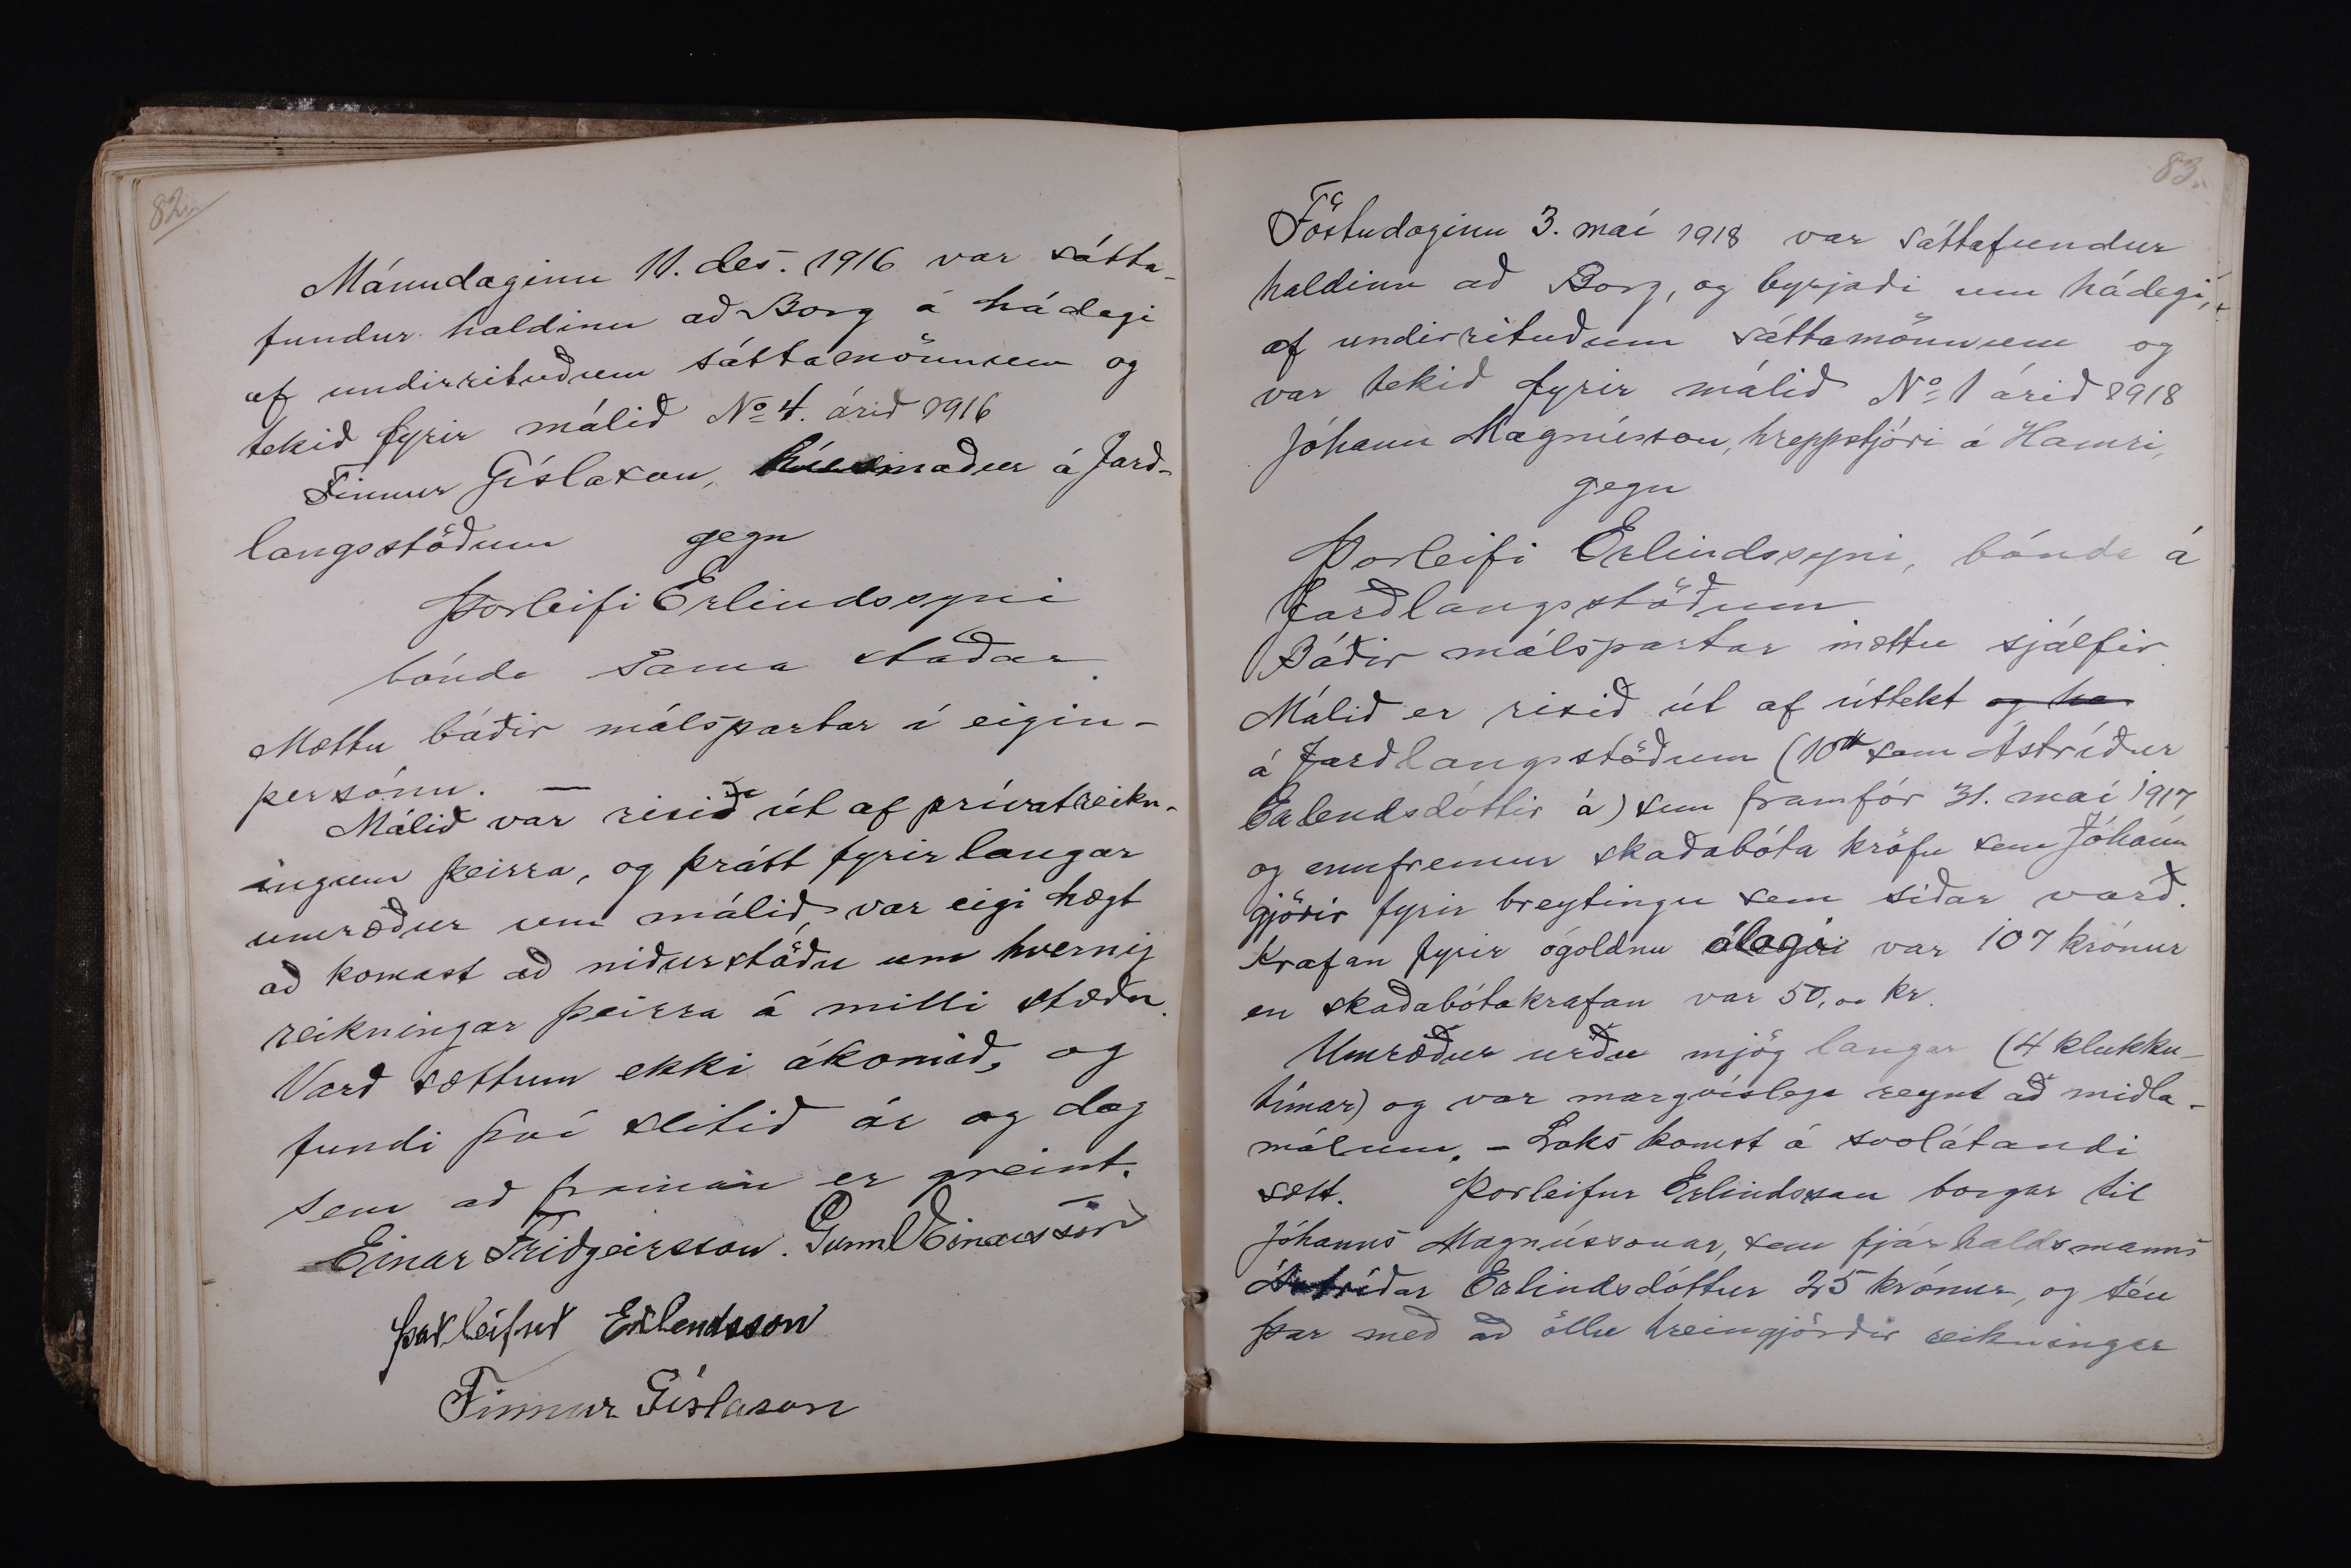 82.
Mánudaginn 11. des. 1916 var sátta-
fundur haldinn að Borg á hádegi
af undirrituðum sáttamönnum og
tekið fyrir málið No 4. árið 1916
Finnur Gíslason, húsmaður á Jarð-
langsstöðum gegn
Þorleifi Erlindssyni
bónda sama staðar.
Mættu báðir málspartar í eigin-
persónu. —
Málið var risið út af prívatreikn-
ingum þeirra, og þrátt fyrir langar
umræður um málið var eigi hægt
að komast að niðurstöðu um hvernig
reikningar þeirra á milli stæðu.
Varð sættum ekki ákomið, og
fundi því slitið ár og dag
sem að framan er greint.
Einar Friðgeirsson. Gunnl Einarsson
Þorleifur Erlendsson
Finnur Gíslason
83.
Föstudaginn 3. maí 1918 var sáttafundur
haldinn að Borg, og byrjaði um hádegi,
af undirrituðum sáttamönnum og
var tekið fyrir málið No 1 árið 1918
Jóhann Magnússon, hreppstjóri á Hamri,
gegn
Þorleifi Erlindssyni, bónda á
Jarðlangsstöðum
Báðir málspartar mættu sjálfir.
Málið er risið út af úttekt og ha
á Jarðlangsstöðum (10 sem Ástríður
Erlendsdóttir á) sem framfór 31. maí 1917
og ennfremur skaðabóta kröfu sem Jóhann
gjörir fyrir breytingu sem síðar varð.
Krafan fyrir ógoldnu álagi var 107 krónur
en skaðabótakrafan var 50,00 kr.
Umræður urðu mjög langar (4 klukku-
tímar) og var margvíslega reynt að miðla-
málum. – Loks komst á svolátandi
sætt. Þorleifur Erlindsson borgar til
Jóhanns Magnússonar, sem fjárhaldsmanns
Ástríðar Erlindsdóttur 25 krónur, og séu
þar með að öllu hreingjörðir reikningar